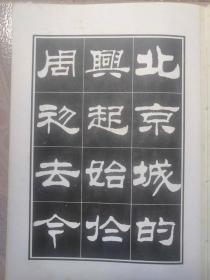 北京城的
興起始於
周初去今